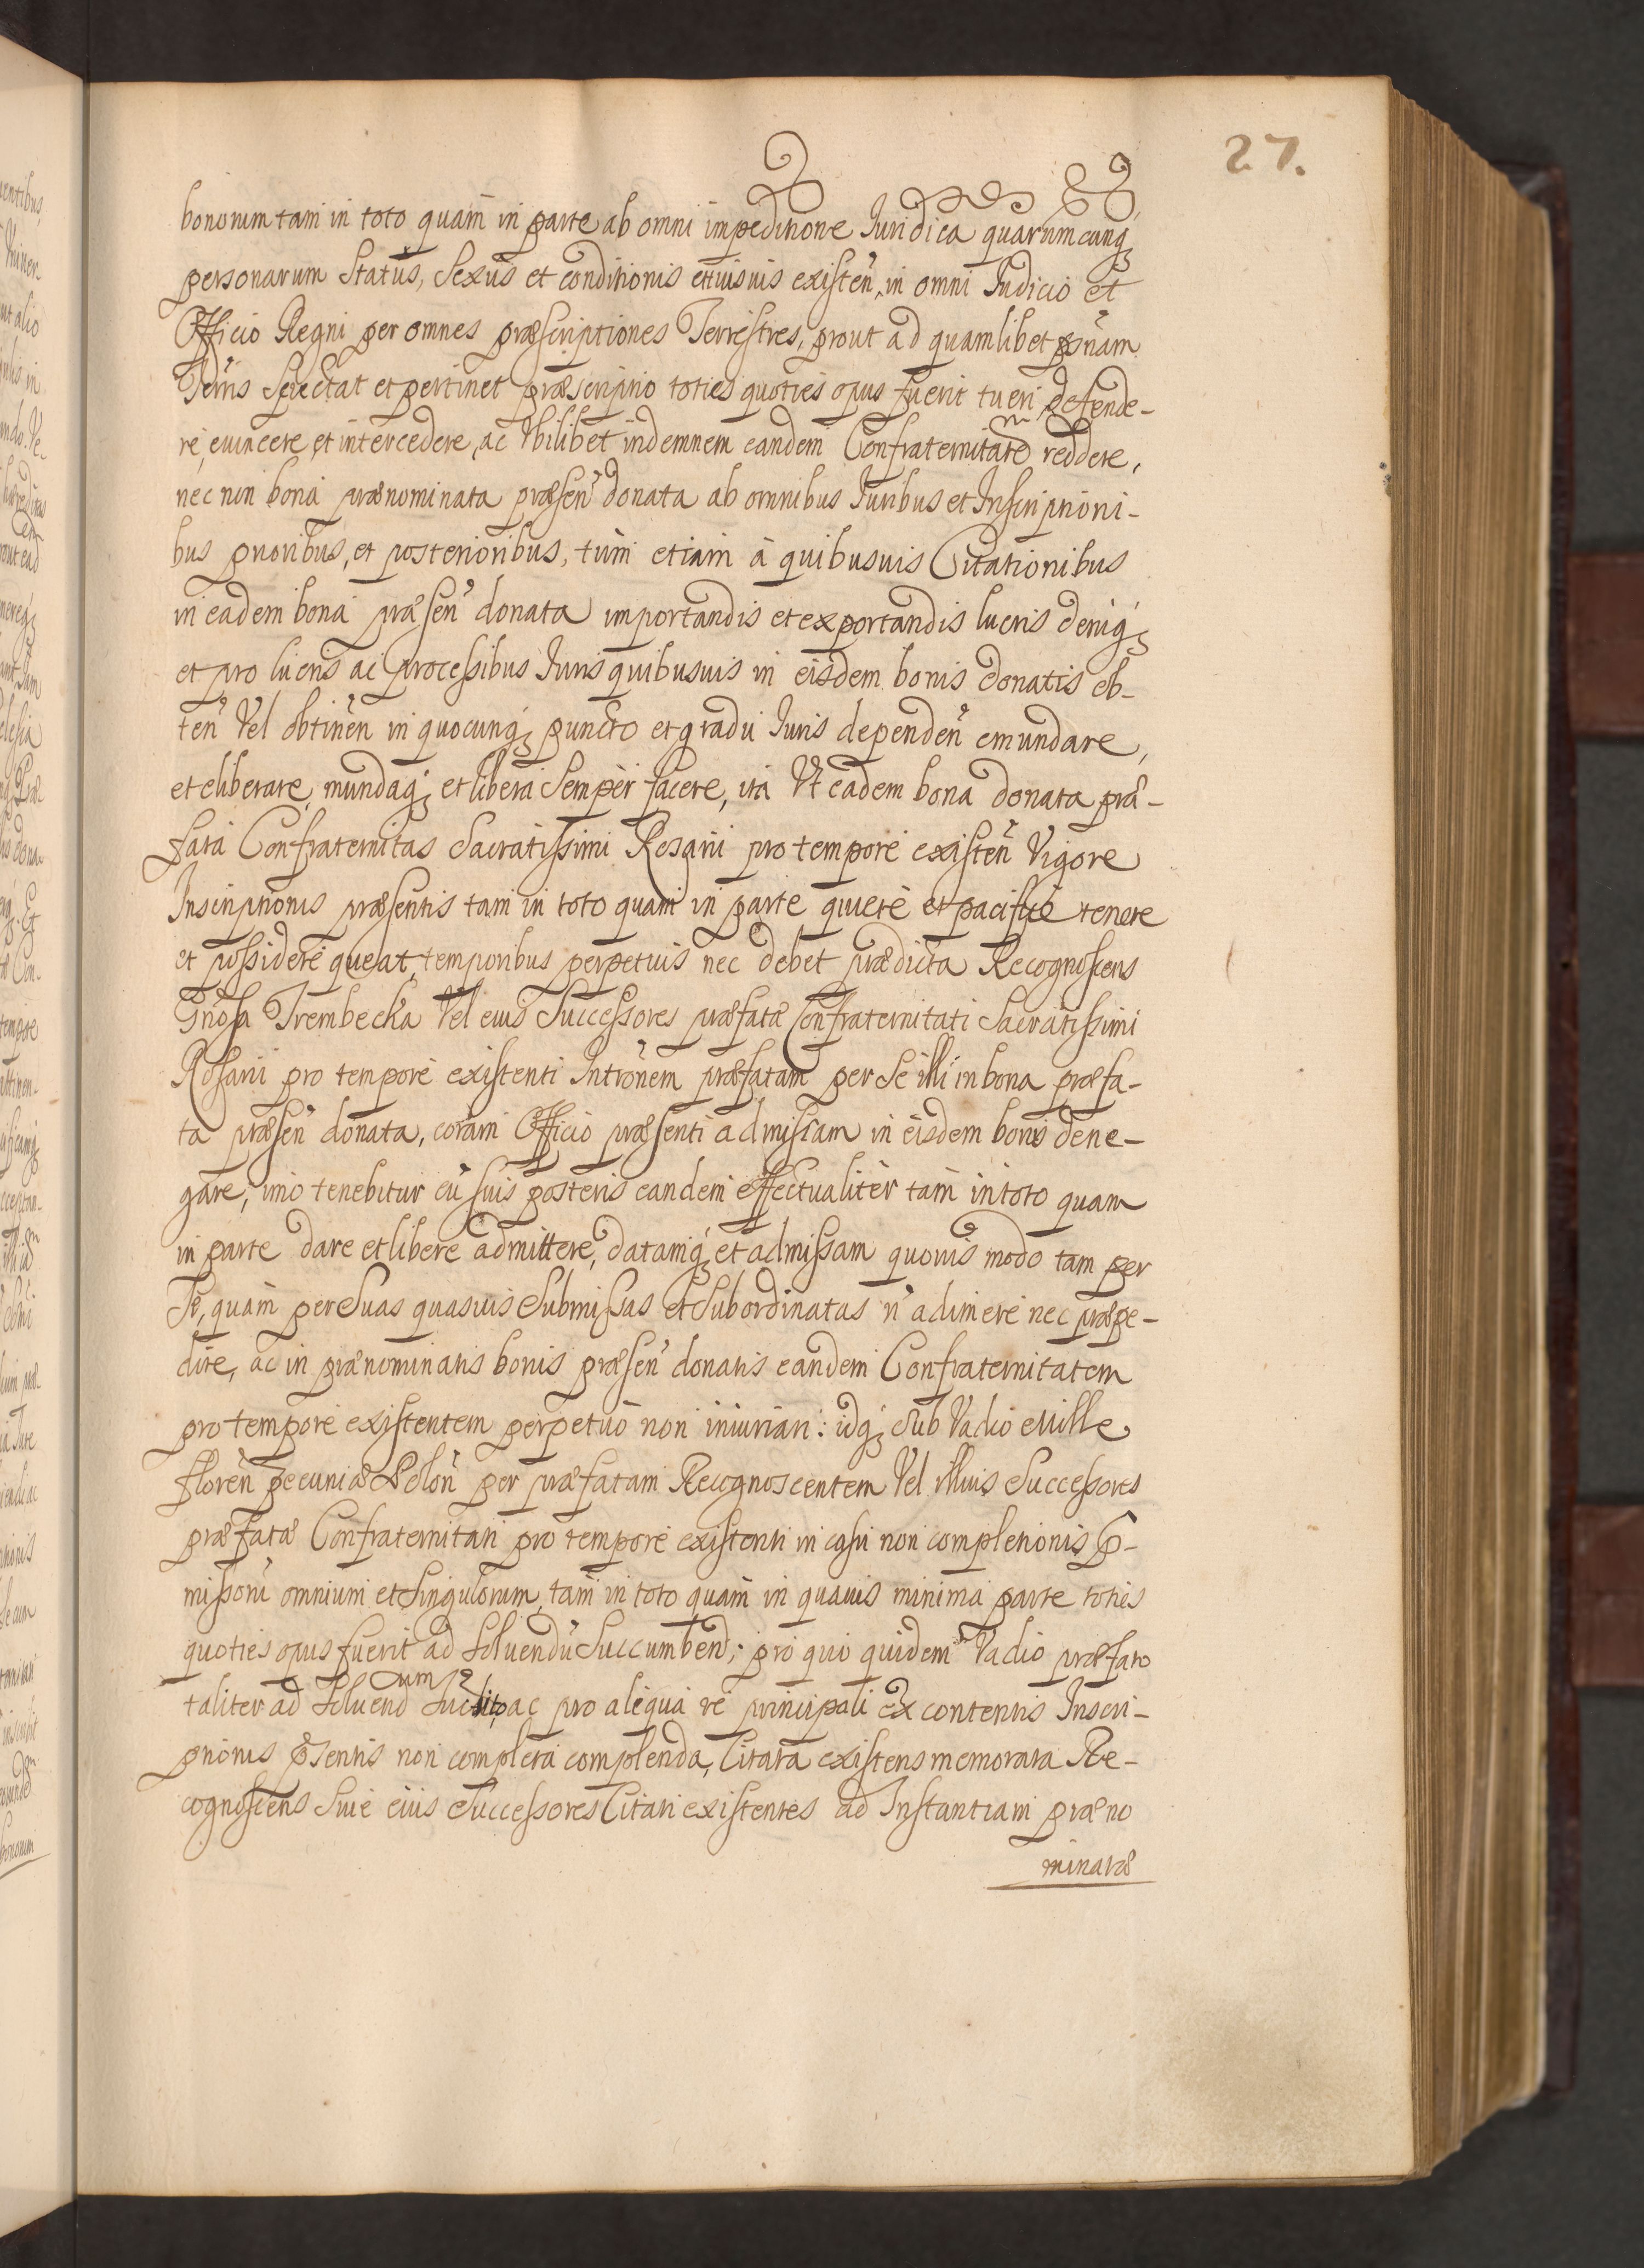 27.
bonorum tam in toto quam in parte ab omni impeditione Juridica quarumcunq
personarum Status, Sexus et conditionis existen, in omni Judicio et
Officio Regni per omnes præscriptiones Terrestres, prout ad quamlibet psnam
Terris Spectat et pertinet præscriptio toties quoties opus fuerit tueri defende-
re, euincere et intercedere, ac Vbilibet indemnem eandem Confraternitate reddere,
nec non bona prænominata præsen donata ab omnibus Juribus et Inscriptioni-
bus prioribus, et posterioribus, tum etiam à quibusuis Citationibus
in eadem bona præsen donata importandis et exportandis lucris deniq
et pro lucris ac processibus Juris quibusuis in eisdem bonis donatis ob-
ten Vel obtinen in quocunq puncto et gradu Juris dependen emundare,
et eliberare, mundaq et libera Semper facere, ita Vt eadem bona donata præ-
fata Confraternitas Sacratissimi Rosarii pro tempore existen Vigore
Inscriptionis præsentis tam in toto quam in parte quiete et pacifice tenere
et possidere queat, temporibus perpetuis nec debet prædicta Recognoscens
Gnosa Trembecka Vel eius Successores præfatæ Confraternitati Sacratissimi
Rosarii pro tempore existenti Intronem præfatam per Se illi in bona præfa-
ta præsen donata, coram Officio præsenti admissam in eisdem bonis dene-
gare, imo tenebitur cu suis posteris eandem effectualiter tam in toto quam
in parte dare et libere admittere, datamq et admissam quouis modo tam per
Se, quam per Suas quasuis Submissas et Subordinatas n adimere nec præpe-
dire, ac in prænominatis bonis præsen donatis eandem Confraternitatem
pro tempore existentem perpetuo non iniurian: idq Sub Vadio Mille
floren pecuniæ Polon per præfatam Recognoscentem Vel illius Successores
præfatæ Confraternitati pro tempore existenti in casu non completionis p-
missoru omnium et Singulorum, tam in toto quam in quauis minima parte toties
quoties opus fuerit ad Soluendu Succumbend; pro quo quidem Vadio præfato
taliter ad Soluend ac pro aliqua re principali ex contentis Inscri-
ptionis psentis non completa complenda, Citata existens memorata Re-
cognoscens Siue eius Successores Citati existentes ad Instantiam præno
minatæ